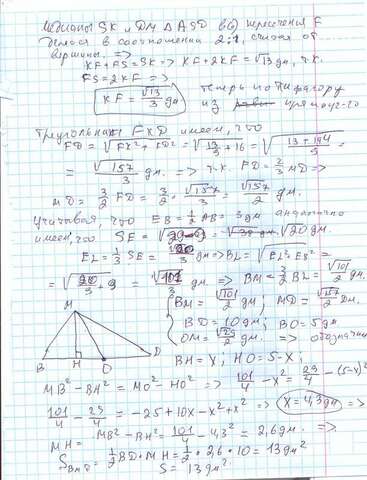 Медианы SK и DM ΔASD в (·) пересечения F
делятся в соотношении 2:1, считая от
вершины. =>
KF+FS=SK => KF+2KF=√13 дм, т.к.
FS=2KF =>
KF = √13/3 дм теперь по Пифагору
из прямоуг-го
треугольника FKD имеем, что
FD = √FK²+KD² = √13/9+16 = √(13+144)/9 =
= √157/3 дм. => т.к. FD = 2/3 MD =>
MD = 3/2 FD = 3/2 · √157/3 = √157/2 дм.
Учитывая, что EB = 1/2 AB = 3 дм аналогично
имеем, что SE = √20 дм.
EL = 1/3 SE = √20/3 дм => BL = √EL²+EB² =
= √20/9+9 = √101/3 дм => BM = 3/2 BL = √101/2 дм
BM = √101/2 дм, MD = √157/2 дм.
BD = 10 дм; BO = 5 дм
OM = √29/2 дм. => обозначим
M
B H O D
BH = x; HO = 5-x;
MB² - BH² = MO² - HO² => 101/4 - x² = 29/4 - (5-x)²
101/4 - 29/4 = -25+10x-x²+x² => x = 4,3 дм =>
MH = MB² - BH² = 101/4 - 4,3² = 2,6 дм. =>
S BMD = 1/2 BD · MH = 1/2 · 2,6 · 10 = 13 дм²
S = 13 дм²